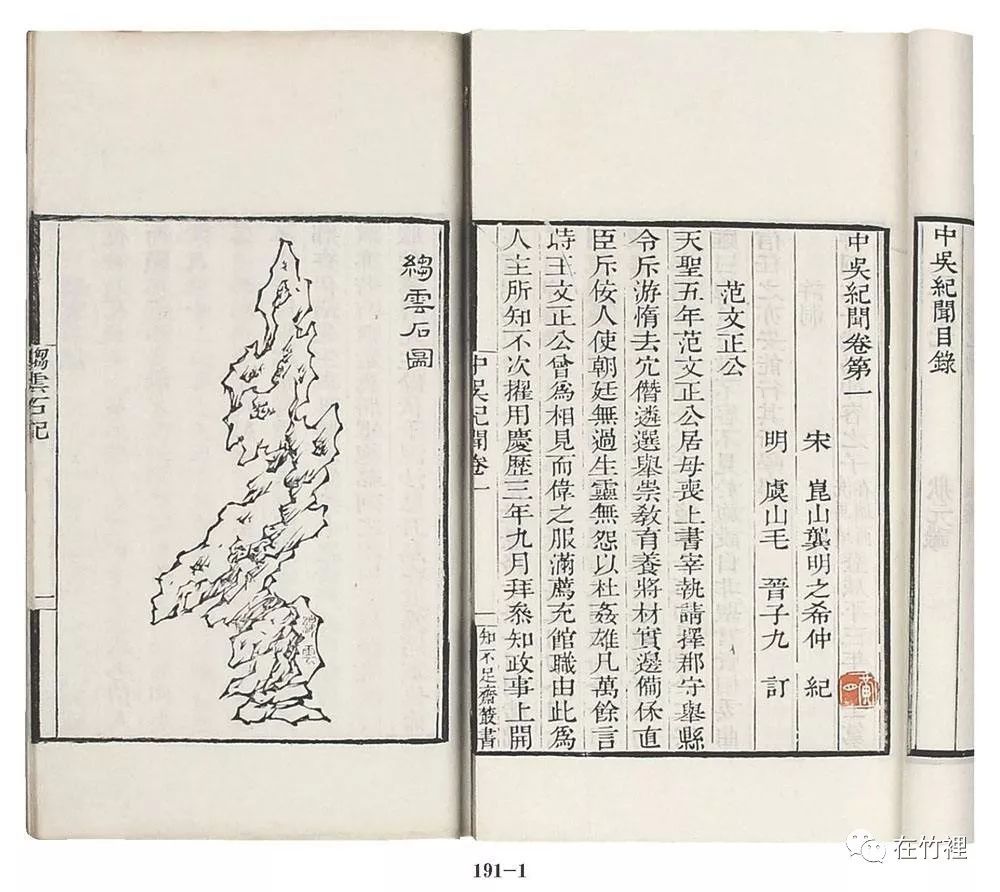 中吳紀聞目錄
中吳紀聞卷第一
宋 崑山龔明之希仲 紀
明 虞山毛 晉子九 訂
范文正公
天聖五年范文正公居母喪上書宰執請擇郡守舉縣
令斥游惰去冗僭遴選舉崇敎育養將材實邊備保直
臣斥佞人使朝廷無過生靈無怨以杜姦雄凡萬餘言
時王文正公曾爲相見而偉之服滿薦充館職由此爲
人主所知不次擢用慶歷三年九月拜叅知政事上開
中吳紀聞卷一
一
知不足齋叢書
縐雲石圖
縐雲
縐雲石記
一
191-1
在竹裡